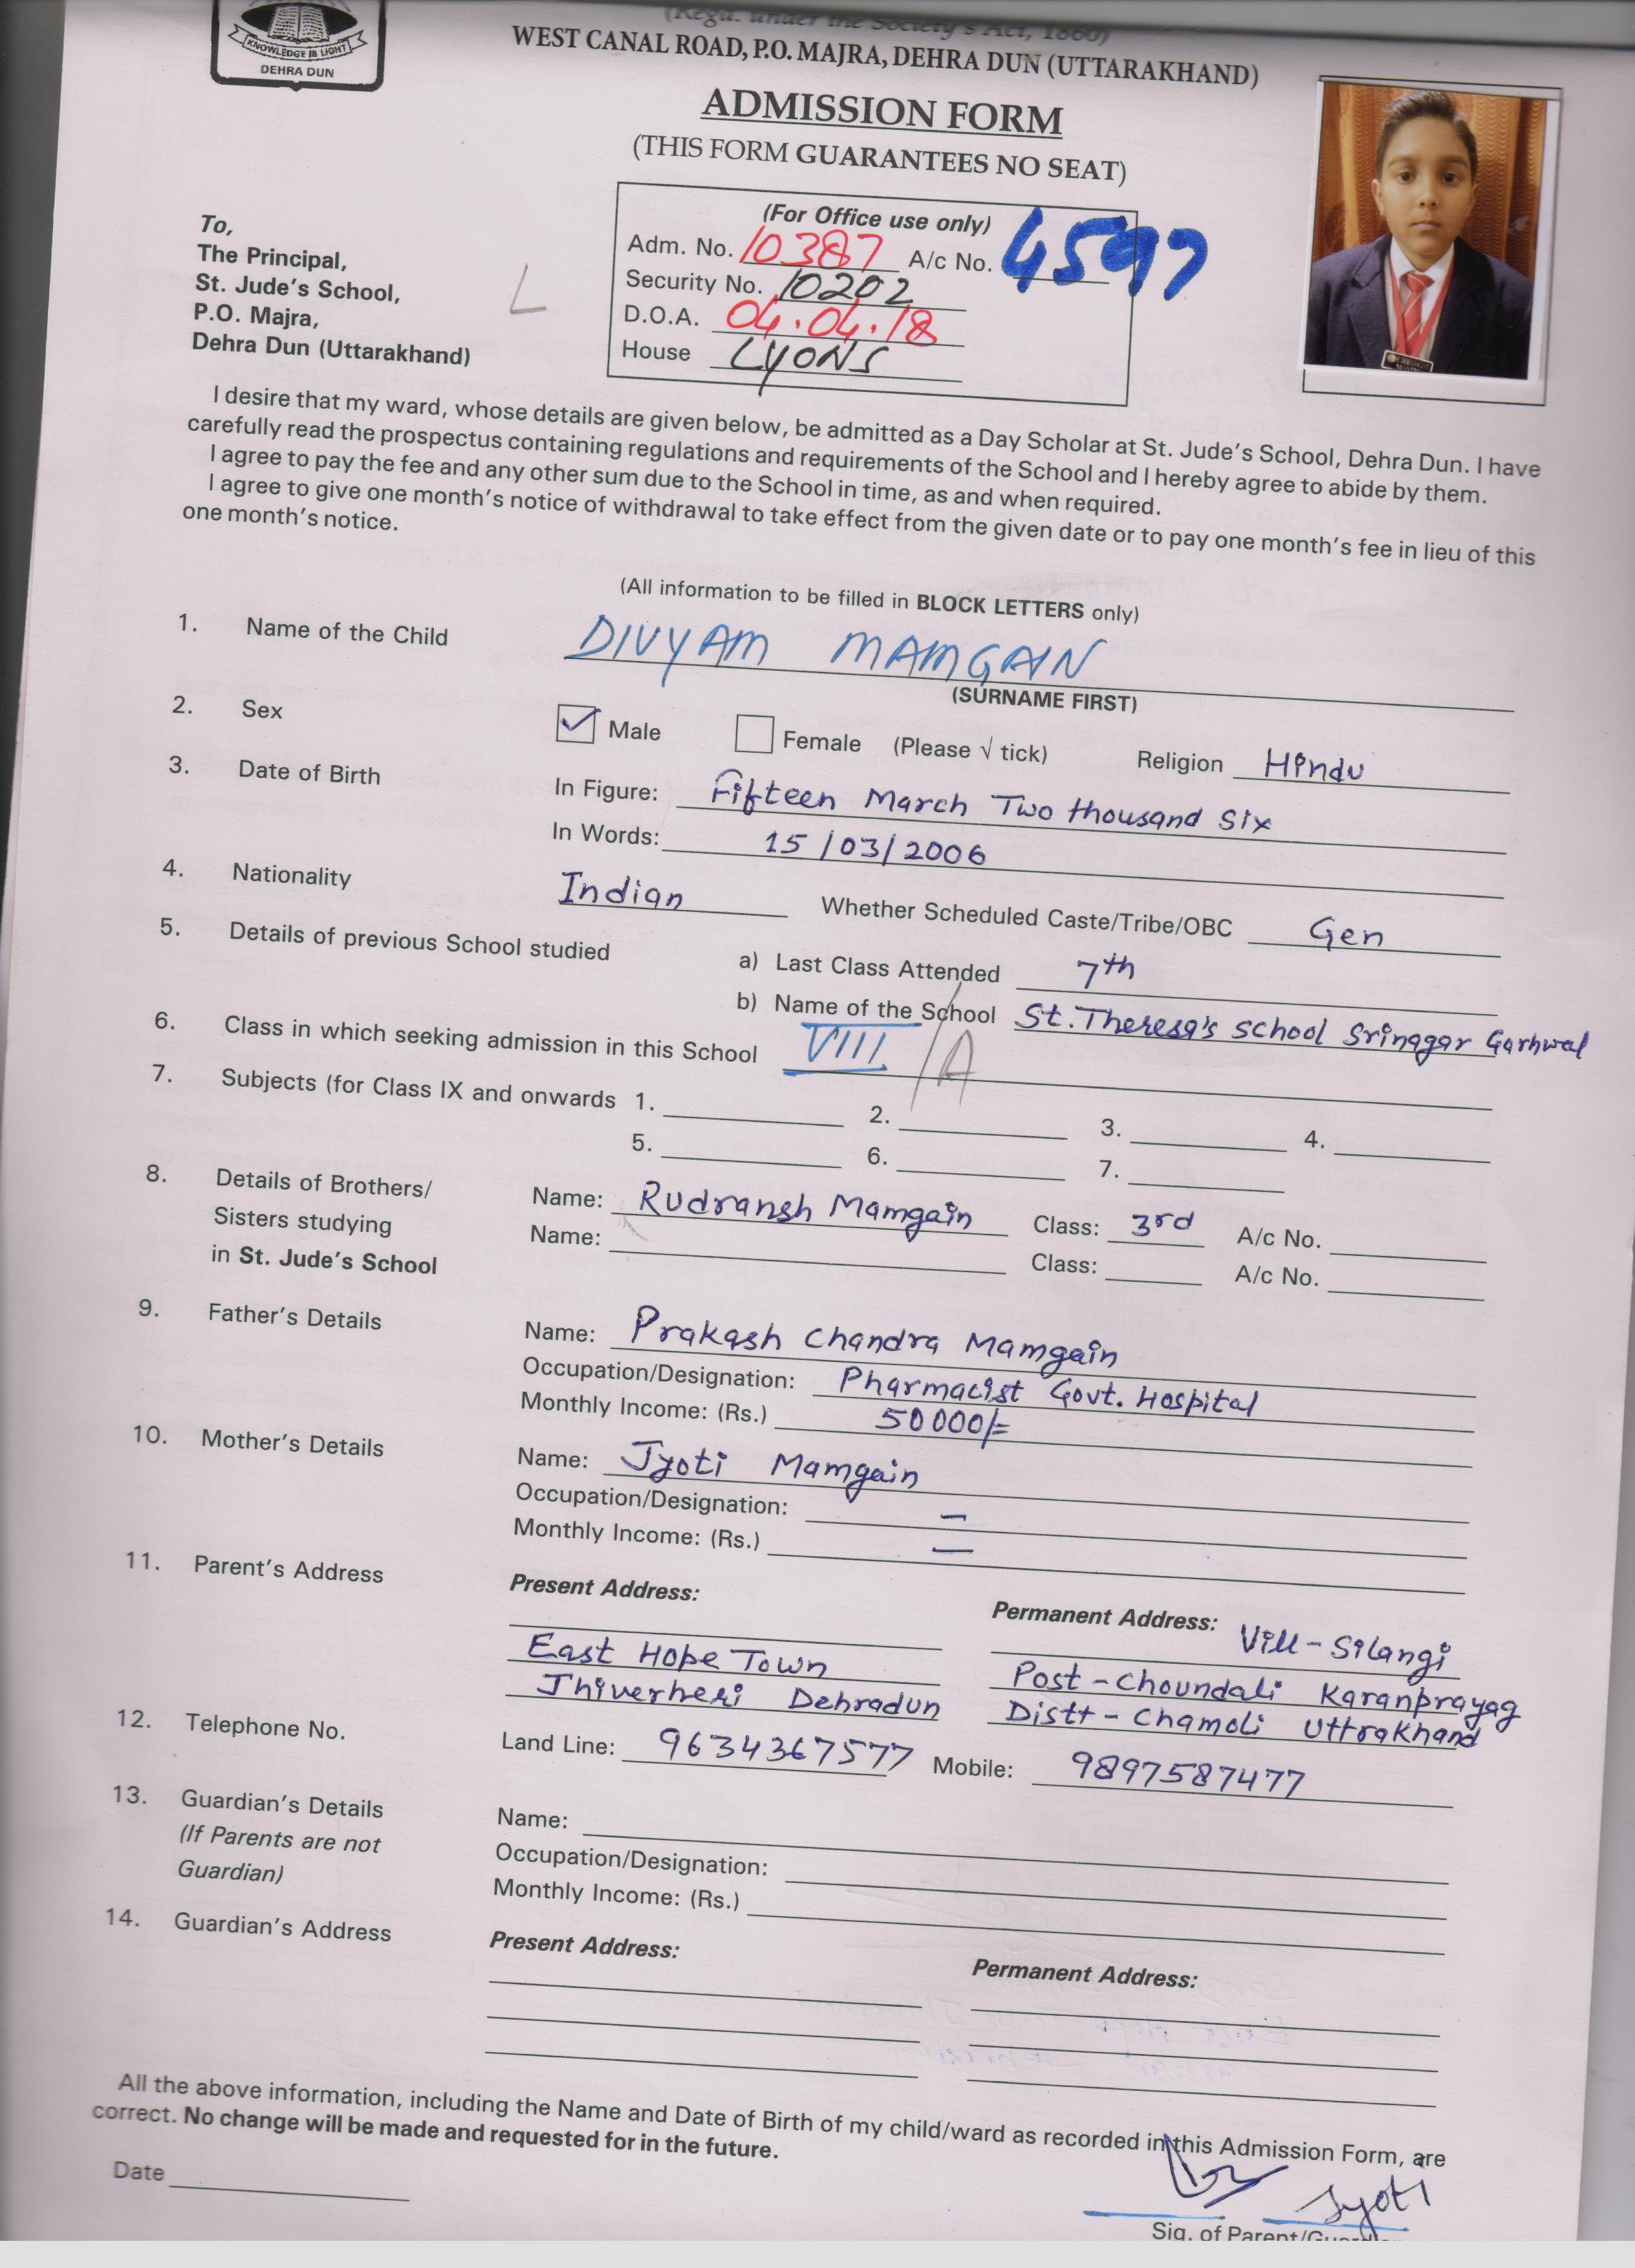 KNOWLEDGE IS LIGHT
DEHRA DUN
(Regd. under the Society's Act, 1860)
WEST CANAL ROAD, P.O. MAJRA, DEHRA DUN (UTTARAKHAND)
ADMISSION FORM
(THIS FORM GUARANTEES NO SEAT)
To,
The Principal,
St. Jude's School,
P.O. Majra,
Dehra Dun (Uttarakhand)
L
(For Office use only)
Adm. No. 10387 A/c No. 4597
Security No. 10202
D.O.A. 04.04.18
House LYONS
I desire that my ward, whose details are given below, be admitted as a Day Scholar at St. Jude's School, Dehra Dun. I have
carefully read the prospectus containing regulations and requirements of the School and I hereby agree to abide by them.
I agree to pay the fee and any other sum due to the School in time, as and when required.
I agree to give one month's notice of withdrawal to take effect from the given date or to pay one month's fee in lieu of this
one month's notice.
(All information to be filled in BLOCK LETTERS only)
1. Name of the Child DIVYAM MAMGAIN
(SURNAME FIRST)
2. Sex Male Female (Please √ tick) Religion Hindu
3. Date of Birth In Figure: Fifteen March Two thousand Six
In Words: 15/03/2006
4. Nationality Indian Whether Scheduled Caste/Tribe/OBC Gen
5. Details of previous School studied a) Last Class Attended 7th
b) Name of the School St. Theresa's School Srinagar Garhwal
6. Class in which seeking admission in this School VIII /A
7. Subjects (for Class IX and onwards 1. 2. 3. 4.
5. 6. 7.
8. Details of Brothers/ Name: Rudransh Mamgain Class: 3rd A/c No.
Sisters studying Name: Class: A/c No.
in St. Jude's School
9. Father's Details Name: Prakash Chandra Mamgain
Occupation/Designation: Pharmacist Govt. Hospital
Monthly Income: (Rs.) 50000/=
10. Mother's Details Name: Jyoti Mamgain
Occupation/Designation: –
Monthly Income: (Rs.) –
11. Parent's Address Present Address: Permanent Address: Vill - Silangi
East Hope Town Post - Choundali Karanprayag
Jhiverheri Dehradun Distt - Chamoli Uttrakhand
12. Telephone No. Land Line: 9634367577 Mobile: 9897587477
13. Guardian's Details Name:
(If Parents are not Occupation/Designation:
Guardian) Monthly Income: (Rs.)
14. Guardian's Address Present Address: Permanent Address:
All the above information, including the Name and Date of Birth of my child/ward as recorded in this Admission Form, are
correct. No change will be made and requested for in the future.
Date
Jyoti
Sig. of Parent/